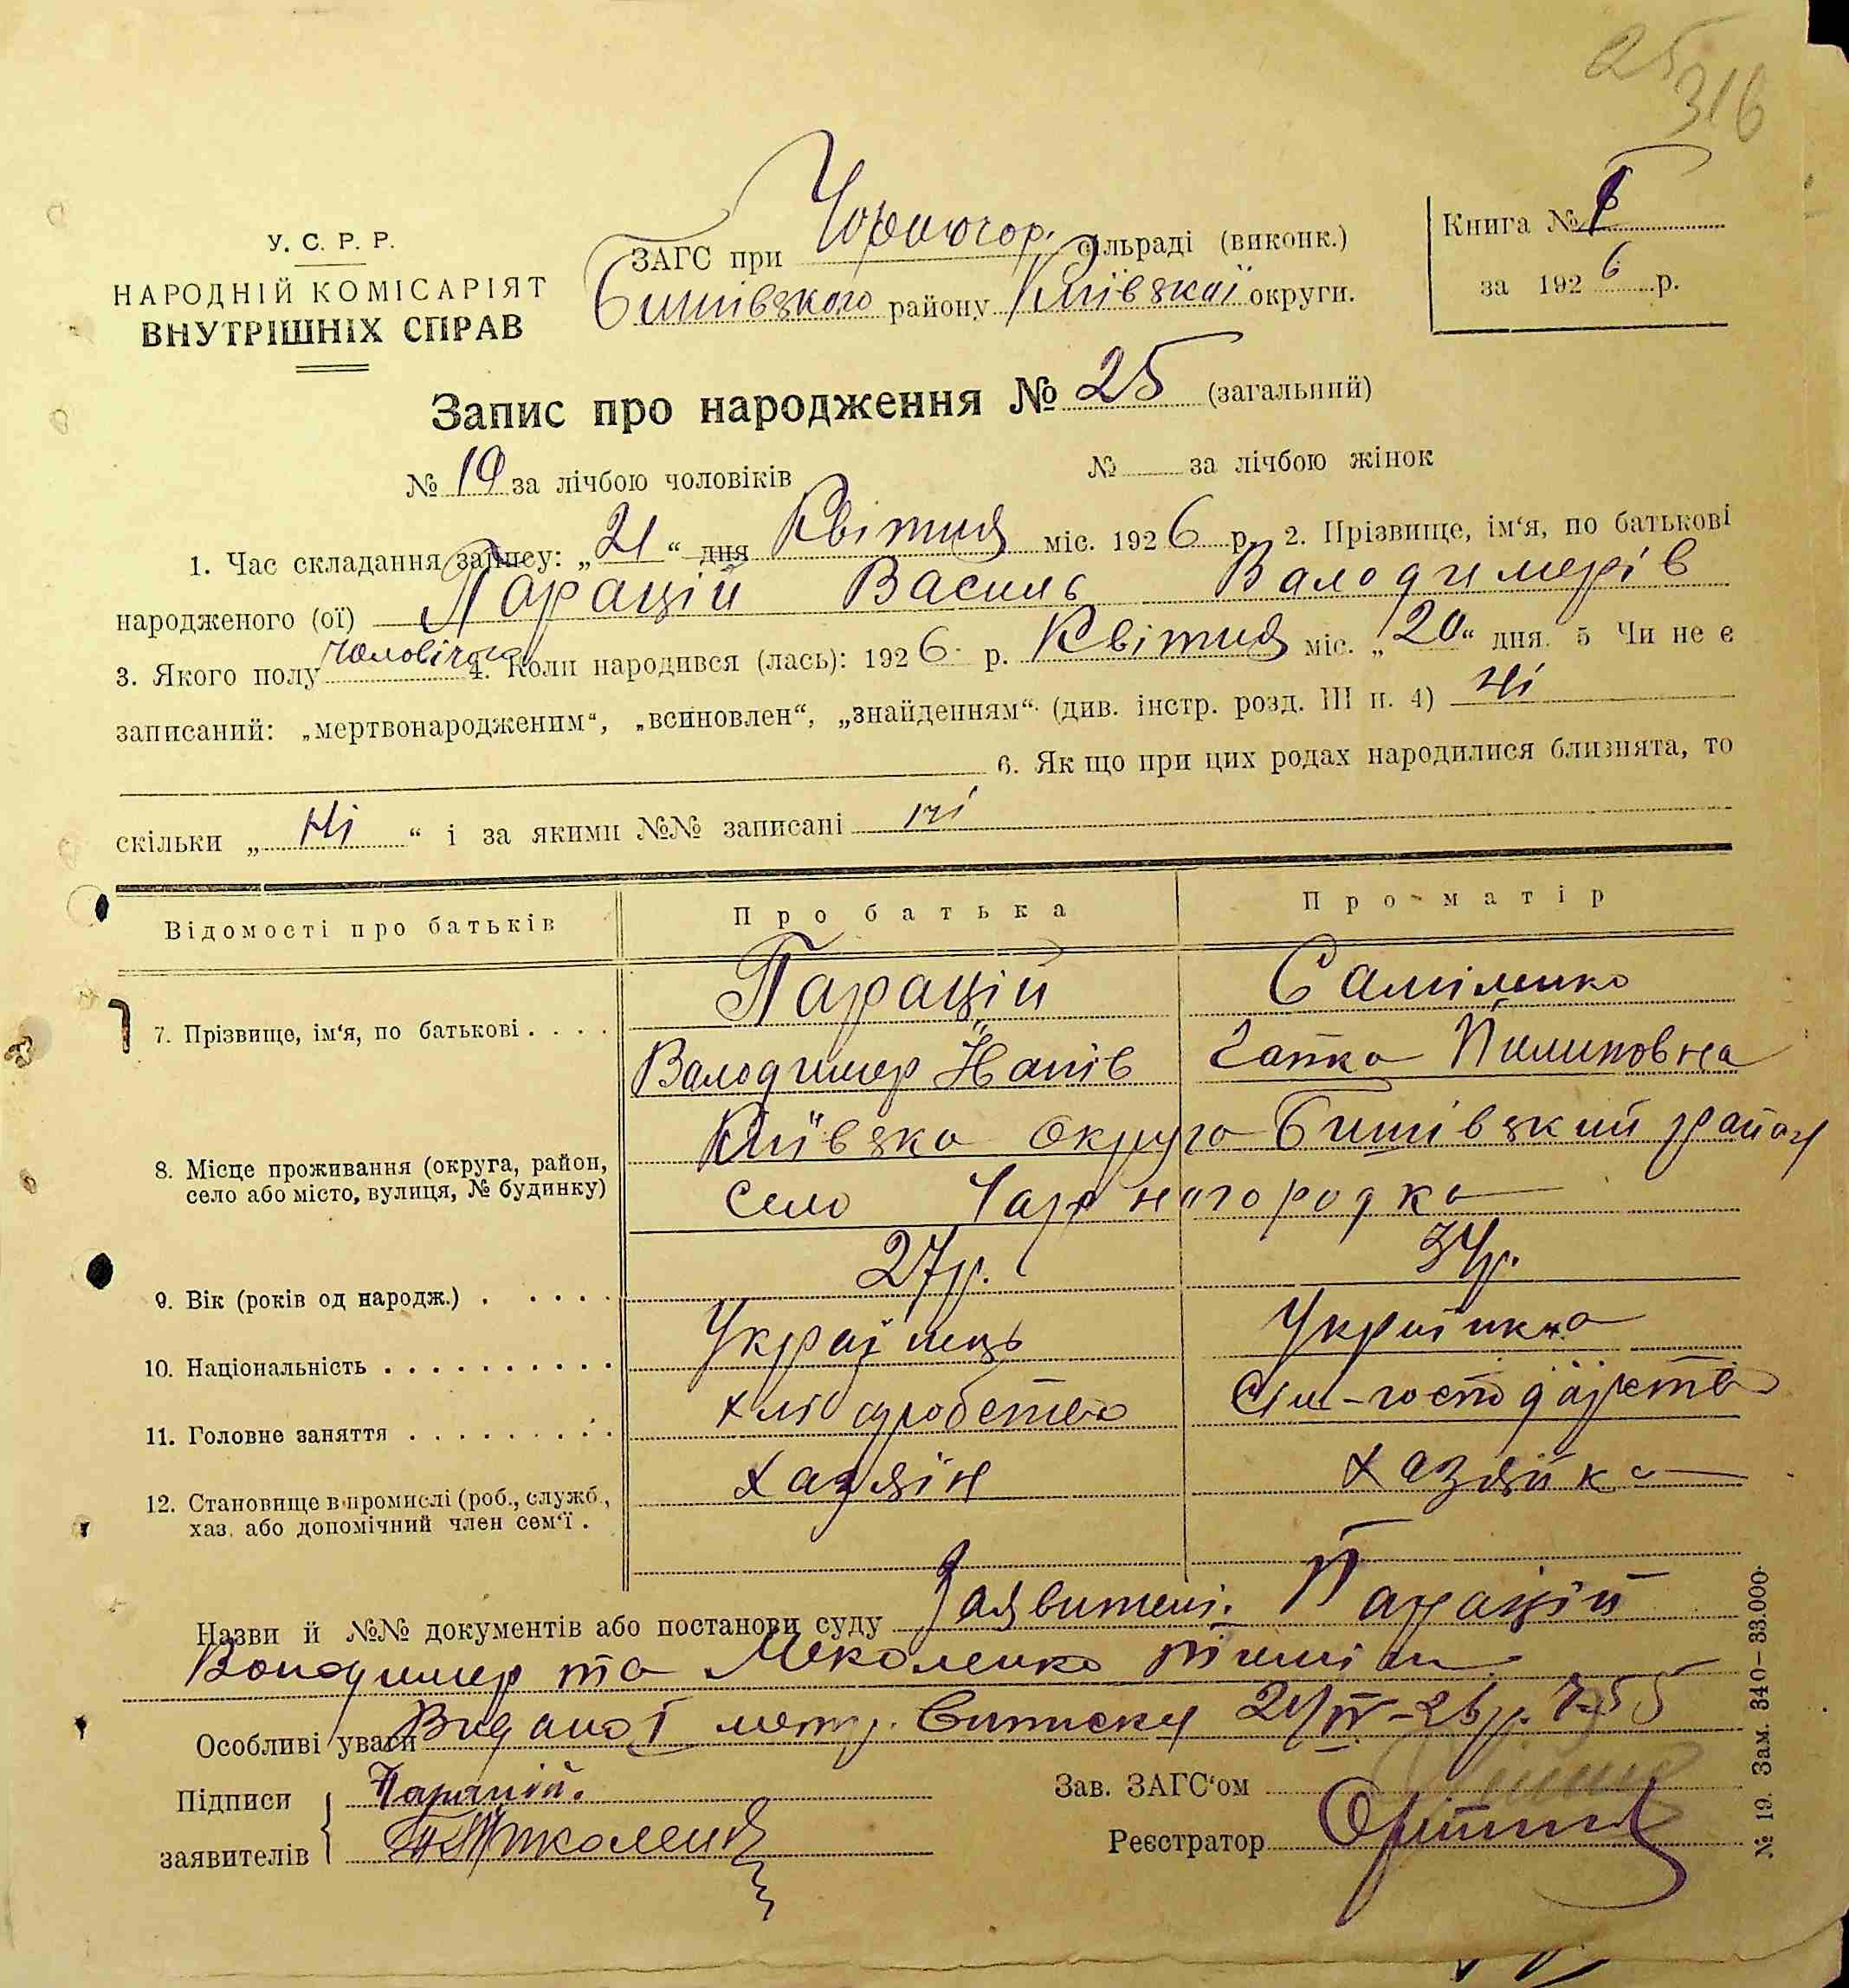 25
316
У. С. Р. Р.
НАРОДНІЙ КОМІСАРІЯТ
ВНУТРІШНІХ СПРАВ
ЗАГС при Чорногор. сільраді (виконк.)
Бишівського району Київської округи.
Книга №
за 1926 р.
Запис про народження № 25 (загальний)
№ 19 за лічбою чоловіків № за лічбою жінок
1. Час складання запису: „21“ дня Квітня міс. 1926 р. 2. Прізвище, ім‘я, по батькові
народженого (ої) Парацій Василь Валодимерів
3. Якого полу чоловічого 4. Коли народився (лась): 1926 р. Квітня міс. „20“ дня. 5 Чи не є
записаний: „мертвонародженим“, „всиновлен“, „знайденням“ (див. інстр. розд. III п. 4) Ні
6. Як що при цих родах народилися близнята, то
скільки „Ні“ і за якими №№ записані ні
Відомості про батьків Про батька Про матір
7. Прізвище, ім‘я, по батькові . . . . Парацій Саміленко
Валодимер Гапка Пилиповна
8. Місце проживання (округа, район,
село або місто, вулиця, № будинку)
Київзка округа Бишівзкий район
село Чорногородка
9. Вік (років од народж.) . . . . . 27р. 34р.
10. Національність . . . . . . . . . . Українець Українка
11. Головне заняття . . . . . . . . . хліборобство Сіл-господарство
12. Становище в промислі (роб., служб.,
хаз. або допомічний член сем‘ї .
Хазяїн Хазяйка
Назви й №№ документів або постанови суду Заявителі. Парацій
Володимер та
Особливі уваги Видано 1 метр. Виписку 21/IV-26р.
Підписи
заявителів
Парацій.
Зав. ЗАГС‘ом
Реєстратор
№ 19. Зам. 340–33.000.